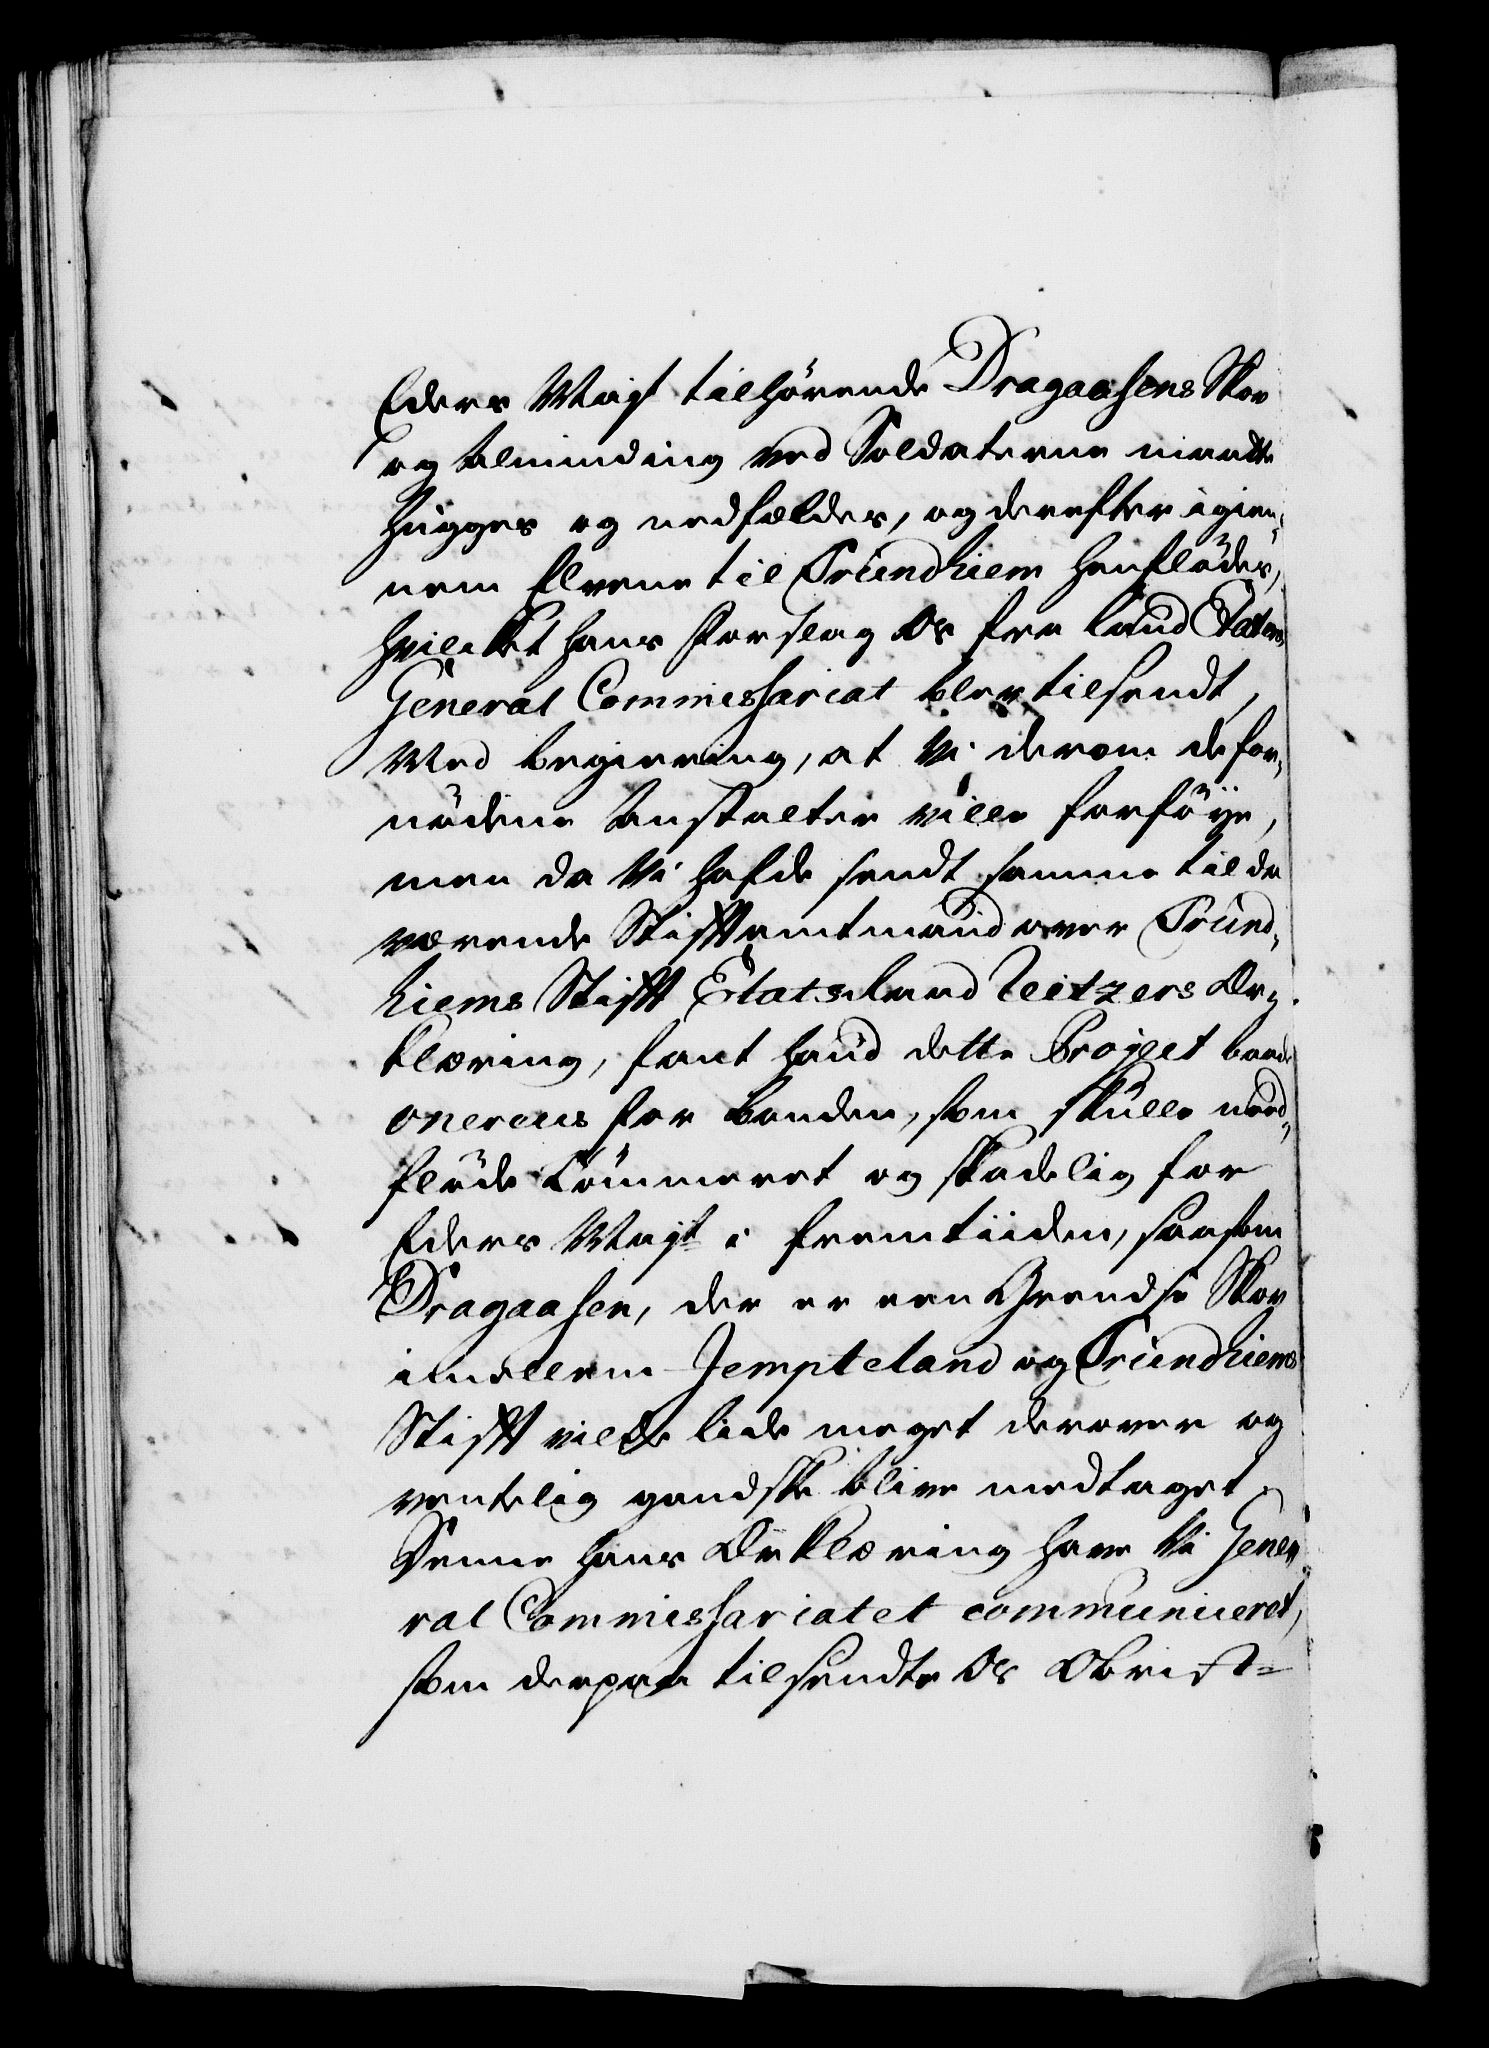 Eders Mayst tilhørende Dragaasens Skov
og Alminding ved Soldaterne maatte
hugges og nedfældes, og derefter igien-
nem Elvene til Trundhiem henflødes,
hvilcket hans Forslag Os fra Land Etatens
General Commissariat blev tilsendt,
Med begiering, at Vi derom de for-
nødene Anstalter ville forføye,
men da Vi hafde sendt samme til da
værende Stifftamtmand over Trund-
hiems Stifft Etatsraad Neitzers Er-
klæring, fant hand dette Project baade
onereus for Bonden, som skulle ned-
fløde Tømmeret og skadelig for
Eders Mayst i fremtiiden, saasom
Dragaasen, der er een Grendse Skov
imellem Jempteland og Trundhiems
Stifft vilde lide meget derover og
ventelig gandske blive medtaget.
Denne hans Erklæring have Vi Gene-
ral Commissariatet communiceret,
som derpaa tilsendte Os Obrist-